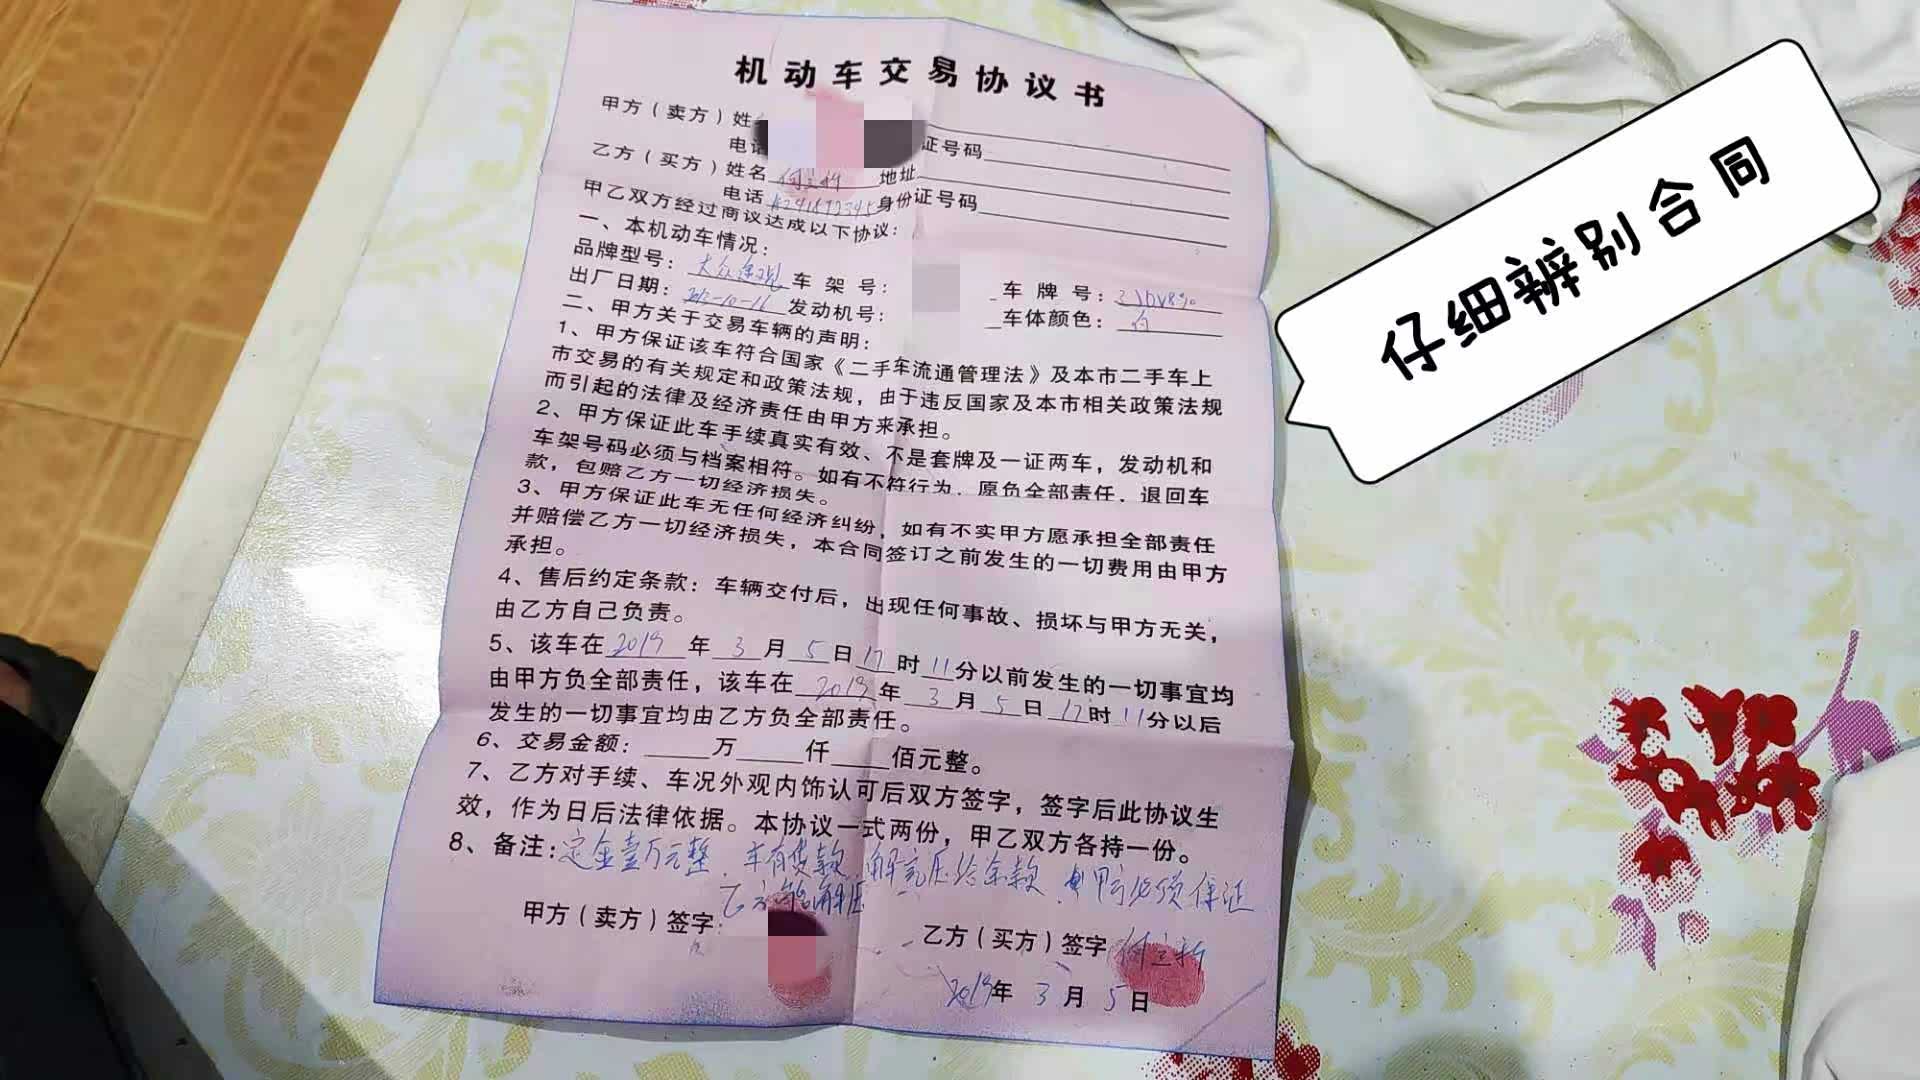 机动车交易协议书
甲方（卖方）姓
电话 证号码
乙方（买方）姓名 地址
电话 身份证号码
甲乙双方经过商议达成以下协议：
一、本机动车情况：
品牌型号：大众途观 车架号： 车牌号：
出厂日期： 发动机号： 车体颜色：白
二、甲方关于交易车辆的声明：
1、甲方保证该车符合国家《二手车流通管理法》及本市二手车上
市交易的有关规定和政策法规，由于违反国家及本市相关政策法规
而引起的法律及经济责任由甲方来承担。
2、甲方保证此车手续真实有效、不是套牌及一证两车，发动机和
车架号码必须与档案相符。如有不符行为，愿负全部责任，退回车
款，包赔乙方一切经济损失。
3、甲方保证此车无任何经济纠纷，如有不实甲方愿承担全部责任
并赔偿乙方一切经济损失，本合同签订之前发生的一切费用由甲方
承担。
4、售后约定条款：车辆交付后，出现任何事故、损坏与甲方无关，
由乙方自己负责。
5、该车在2019年3月5日17时11分以前发生的一切事宜均
由甲方负全部责任，该车在2019年3月5日17时11分以后
发生的一切事宜均由乙方负全部责任。
6、交易金额：万仟佰元整。
7、乙方对手续、车况外观内饰认可后双方签字，签字后此协议生
效，作为日后法律依据。本协议一式两份，甲乙双方各持一份。
8、备注：定金壹万元整．车有贷款．解完压给余款．甲方必须保证
乙方能解压
甲方（卖方）签字： 乙方（买方）签字
2019年3月5日
仔细辨别合同